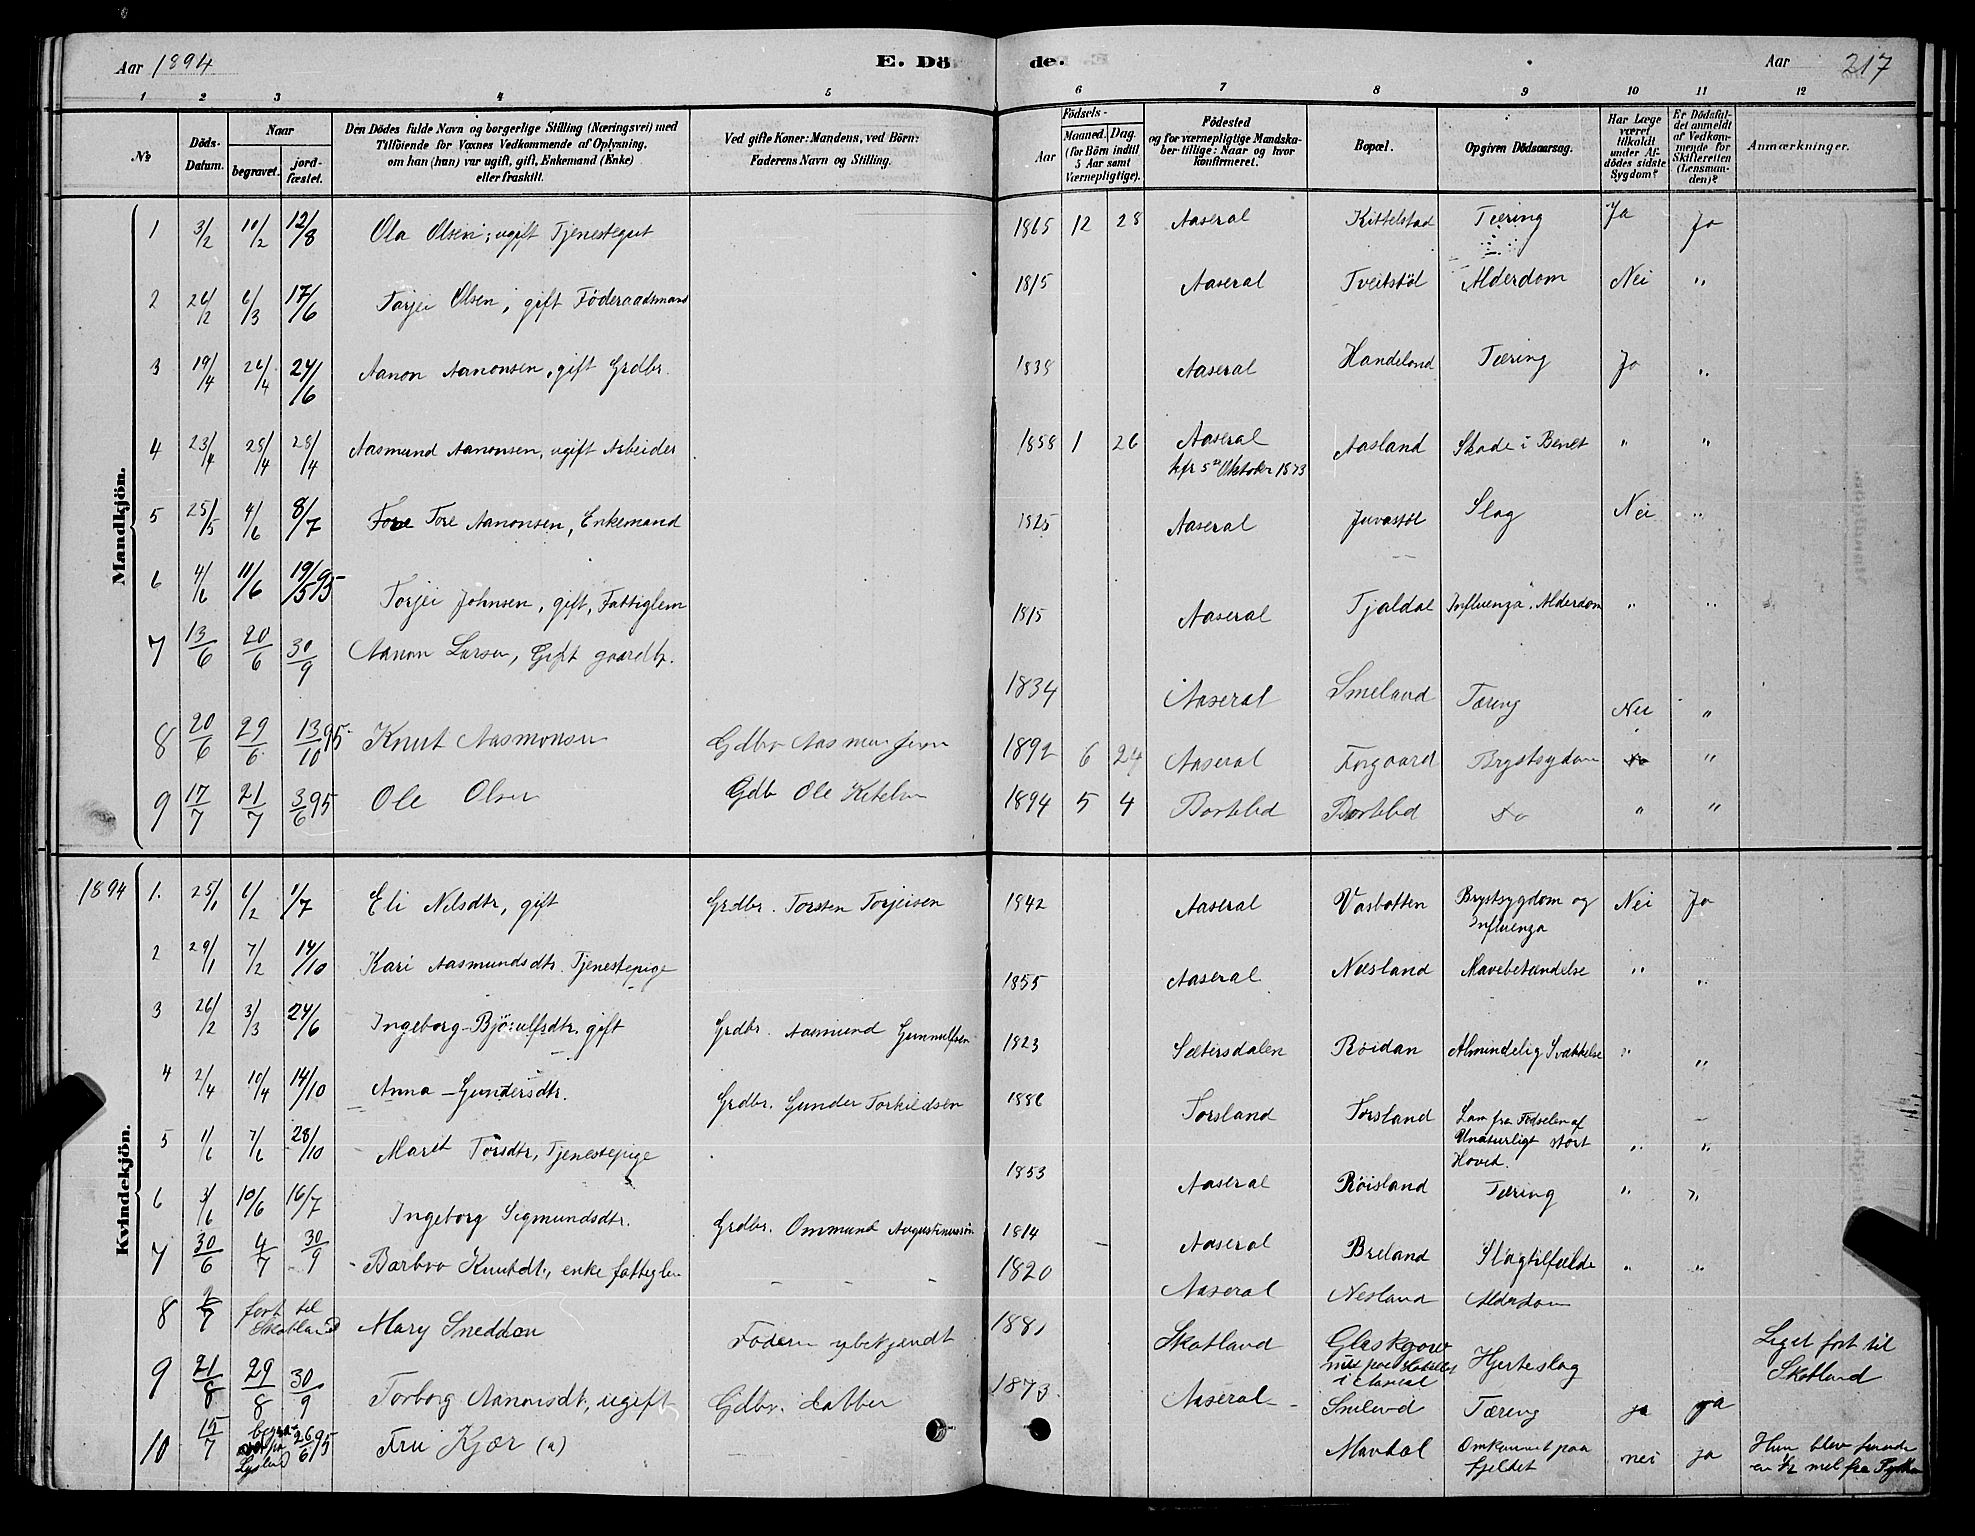 Aar 1894 E. Dö de. Aar 217
1 2 3 4 5 6 7 8 9 10 11 12
№ Döds-Datum. Naar begravet. jordfæstet. Den Dödes fulde Navn og borgerlige Stilling (Næringsvei) med Tilföiende for Voxnes Vedkommende af Oplysning, om han (hun) var ugift, gift, Enkemand (Enke) eller fraskilt. Ved gifte Koner: Mandens, ved Börn: Faderens Navn og Stilling. Födsels- Aar Maaned. Dag. (for Börn indtil 5 Aar samt Værnepligtige). Födested og for værnepligtige Mandskaber tillige: Naar og hvor konfirmeret. Bopæl. Opgiven Dödsaarsag. Har Læge været tilkaldt under Afdödes sidste Sygdom? Er Dödsfaldet anmeldt af Vedkommende for Skifteretten (Lensmanden)? Anmærkninger.
Mandkjön.
1 3/2 10/2 12/8 Ola Olsen, ugift Tjenestegut 1865 12 28 Aaseral Kittelstad Tæring Ja Ja
2 26/2 6/3 17/6 Torjei Olsen, gift Föderaadsmand 1815 Aaseral Tveitstöl Alderdom Nei "
3 19/4 26/4 24/6 Aanon Aanonsen, gift Grdbr. 1838 Aaseral Handeland Tæring Ja "
4 23/4 28/4 28/4 Aasmund Aanonsen, ugift Arbeider 1858 1 26 Aaseral Aasland Skade i Benet " "
kfr 5te Oktober 1873
5 25/5 4/6 8/7 Tore Tore Aanonsen, Enkemand 1825 Aaseral Juvastöl Slag Nei "
6 4/6 11/6 19/5 95 Torjei Johnsen, gift, Fattiglem 1815 Aaseral Tjaldal Influenza, Alderdom " "
7 13/6 20/6 30/9 Aanon Larsen, Gift gaardbr. 1834 Aaseral Smeland Tæring Nei "
8 20/6 29/6 13/10 95 Knut Aasmonsen Gdbr 1892 6 24 Aaseral Forgaard Brystsygdom "
9 17/7 21/7 3/6 95 Ole Olsen Gdb Ole Ketelsen 1894 5 4 Bortelid Bortelid Do " "
1894
Kvindekjön.
1. 25/1 6/2 1/7 Eli Nilsdtr, gift Grdbr. Torsten Torjeisen 1842 Aaseral Vasbotten Brystsygdom og Influenza Nei Ja
2 29/1 7/2 14/10 Kari Aasmundsdtr. Tjenestepige 1855 Aaseral Næsland Mavebetændelse " "
3 26/2 3/3 24/6 Ingeborg Björulfsdtr. gift Grdbr. Aasmund Gunnulfsen 1823 Sætersdalen Röidan Almindelig Svækkelse " "
4 2/4 10/4 14/10 Anna Gundersdtr. Grdbr. Gunder Torkildsen 1886 Torsland Torsland Lam fra Födselen af
Unaturligt stort
Hoved. " "
5 1/6 7/6 28/10 Maret Torsdtr, Tjenestepige 1853 Aaseral Röisland Tæring " "
6 3/6 10/6 16/7 Ingeborg Sigmundsdtr. Grdbr. Ommund Augustinussön 1814 Aaseral Breland Slagtilfælde " "
7 30/6 4/7 30/9 Barbro Knutdt., enke fattiglem 1820 Aaseral Nesland Alderdom
8 fört til Skotland Mary Sneddon Faderen ubekjendt 1881 Skotland Glaskgow Hjerteslag Liget fört til
Skotland
i Aaseral
9 21/8 29/8 30/9 Torborg Aanonsdt, ugift Gdbr. datter 1873. Aaseral Smeland Tæring ja ja
10 15/7 26/6 95 Fru Kjær (a) Mavdal Omkommet paa
fjeldet nei ja Hun blev funnde
en 1/2 mil fra